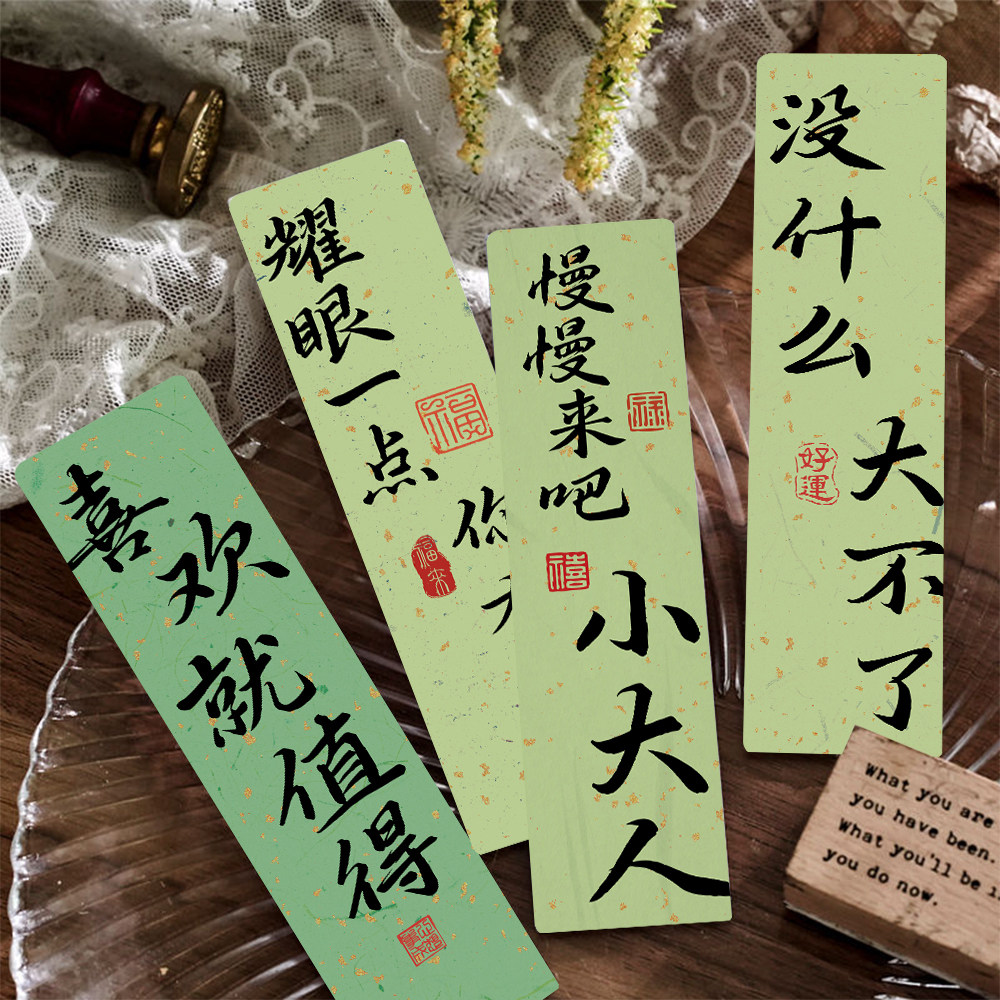 喜欢就值得
耀眼一点
福
福来
慢慢来吧
小大人
禄
禧
没什么
大不了
好運
What you are
you have been.
What you'll be
you do now.